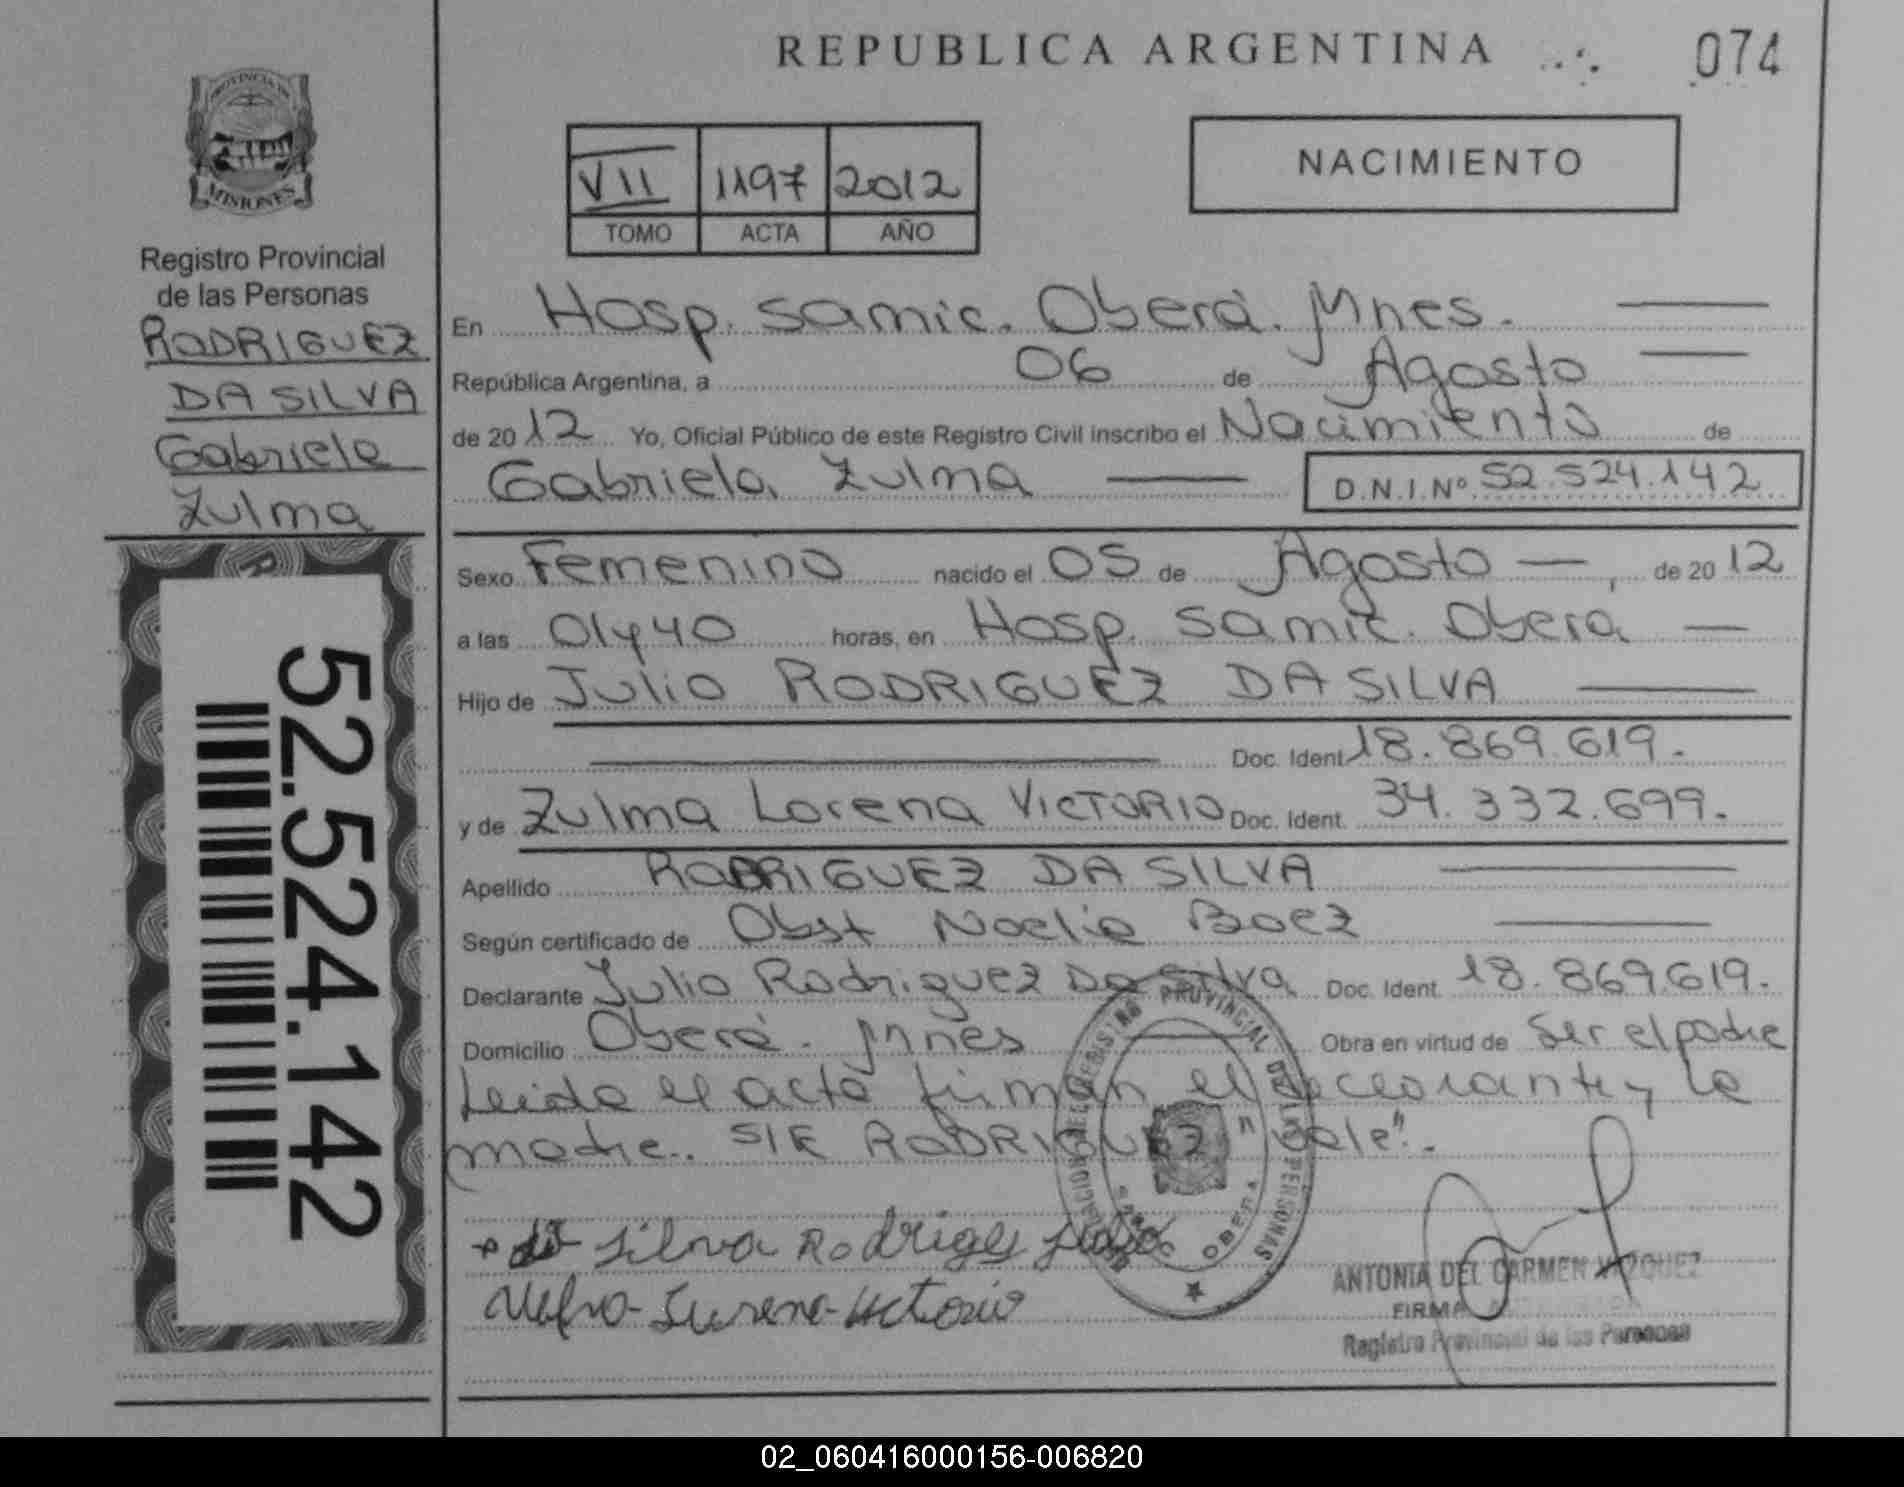 REPUBLICA ARGENTINA
074
PROVINCIA DE
MISIONES
Registro Provincial
de las Personas
RODRIGUEZ
DA SILVA
Gabriela
Zulma
52.524.142
VII 1197 2012
TOMO ACTA AÑO
NACIMIENTO
En Hosp. Samic. Oberá. Mnes.
República Argentina, a 06 de Agosto
de 20 12 Yo, Oficial Público de este Registro Civil inscribo el Nacimiento de
Gabriela Zulma D.N.I.Nº 52.524.142
Sexo Femenino nacido el 05 de Agosto de 20 12
a las 01y40 horas, en Hosp. Samic. Oberá
Hijo de Julio RODRIGUEZ DA SILVA
Doc. Ident 18.869.619.
y de Zulma Lorena VICTORIO Doc. Ident. 34.332.699.
Apellido RODRIGUEZ DA SILVA
Según certificado de Obst Noelia Baez
Declarante Julio Rodriguez Da Silva Doc. Ident. 18.869.619.
Domicilio Oberá. Mnes Obra en virtud de Ser el padre
Leida el acta firman el declarante y la
madre. S/E RODRIGUEZ "vale".
PROVINCIAL DE LAS PERSONAS
OBERA
Silva Rodriges
Victorio
ANTONIA DEL CARMEN VAZQUEZ
FIRMA
Registro Provincial de las Personas
02_060416000156-006820